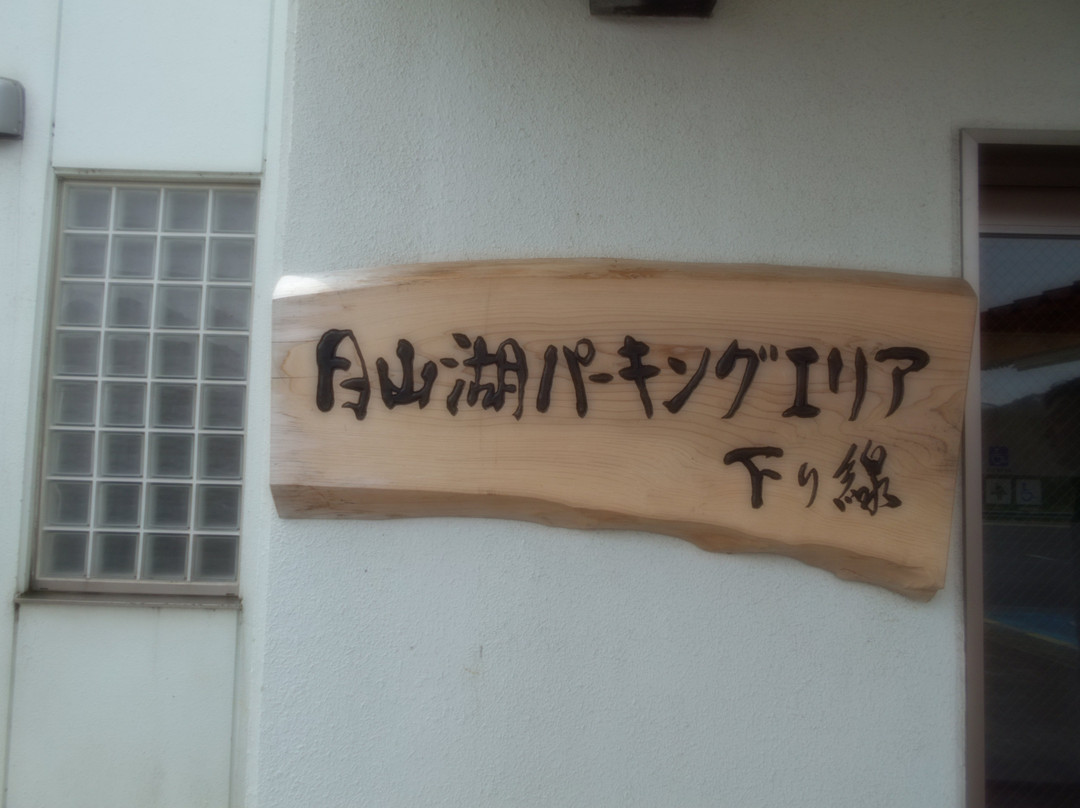 月山湖パーキングエリア
下り線